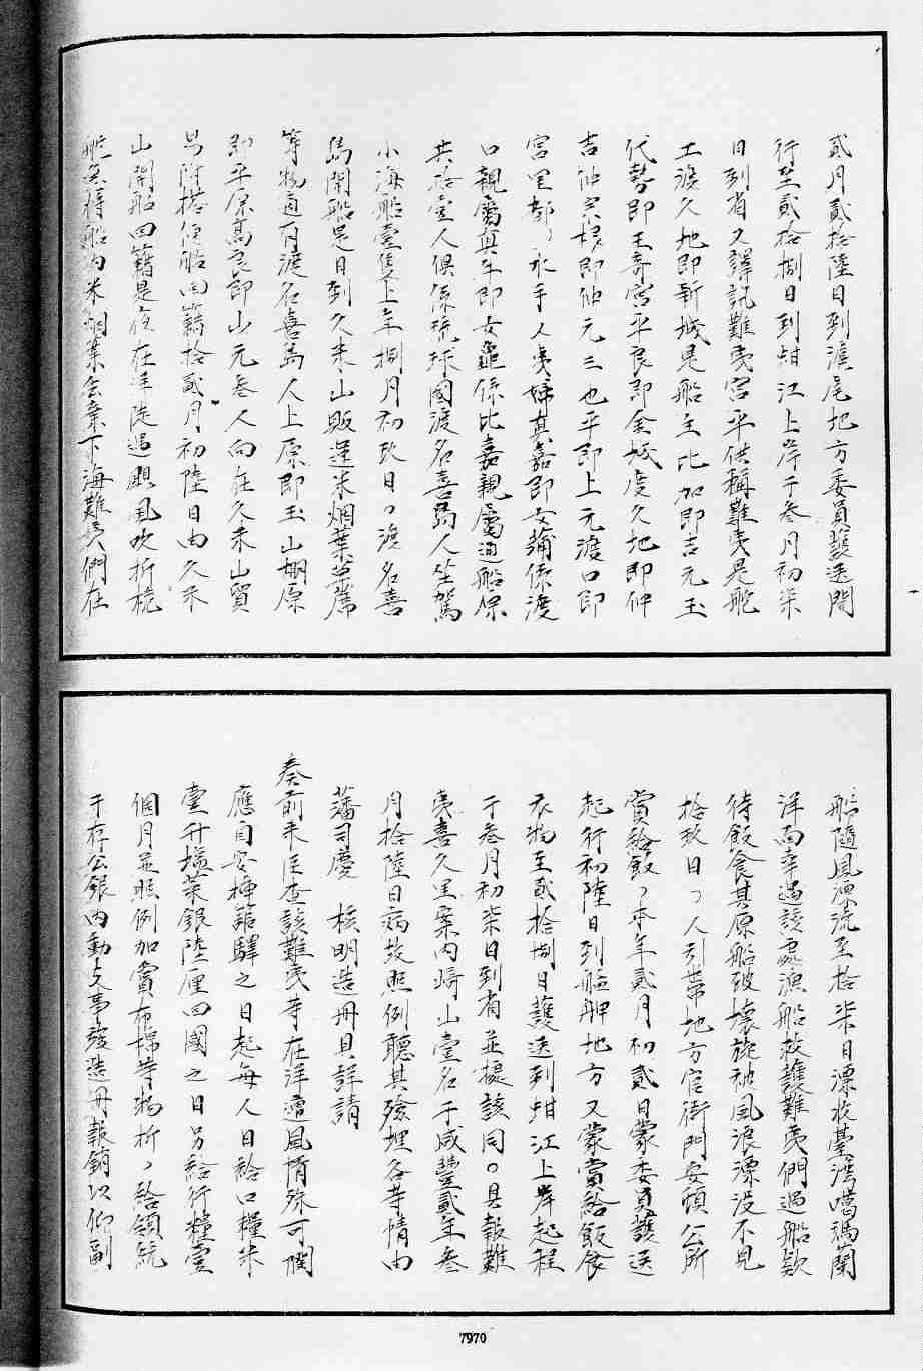 貳月貳拾陸日到滬尾地方委員護送開
行至貳拾捌日到蚶江上岸于叁月初柒
日到省又譯訊難夷宮平供稱難夷是舵
工渡久地即新城見船主比加即吉元玉
代勢即王奇宮平良即金城度久地即仲
吉仲宗樣即仲元三也平即上元渡口即
宮里都〻水手人夷婦真嘉即女蒲係渡
口親屬真牛即女龜係比嘉親屬通船係
共拾壹人俱係琉球國渡名喜島人坐駕
小海船壹隻上年捌月初玖日〻渡名喜
島開船是日到久米山販運米烟葉草蓆
等物適有渡名喜島人上原即玉山棚原
即平原高良即山元叁人向在久米山貿
易附搭便船回籍拾貳月初陸日由久米
山開船回籍是夜在洋陡遇颶風吹折桅
舵無將船內米烟葉丟棄下海難夷們在
船隨風漂流至拾柒日漂收臺灣噶瑪蘭
洋面幸遇該處漁船救護難夷們過船款
待飯食其原船破壞旋被風浪漂沒不見
拾玖日〻人引帶地方官衙門安頓公所
賞給飯〻本年貳月初貳日蒙委員護送
起行初陸日到艋舺地方又蒙賞給飯食
衣物至貳拾捌日護送到蚶江上岸起程
于叁月初柒日到省並據該同〻具報難
夷喜久里案內崎山壹名于咸豐貳年叁
月拾陸日病故照例聽其殮埋各等情由
藩司慶 核明造冊具詳請
奏前來臣查該難夷等在洋遭風情殊可憫
應自安插館驛之日起每人日給口糧米
壹升塩菜銀陸厘回國之日另給行糧壹
個月並照例加賞布棉等物折〻給領統
于存公銀內動支事竣造冊報銷以仰副
7970